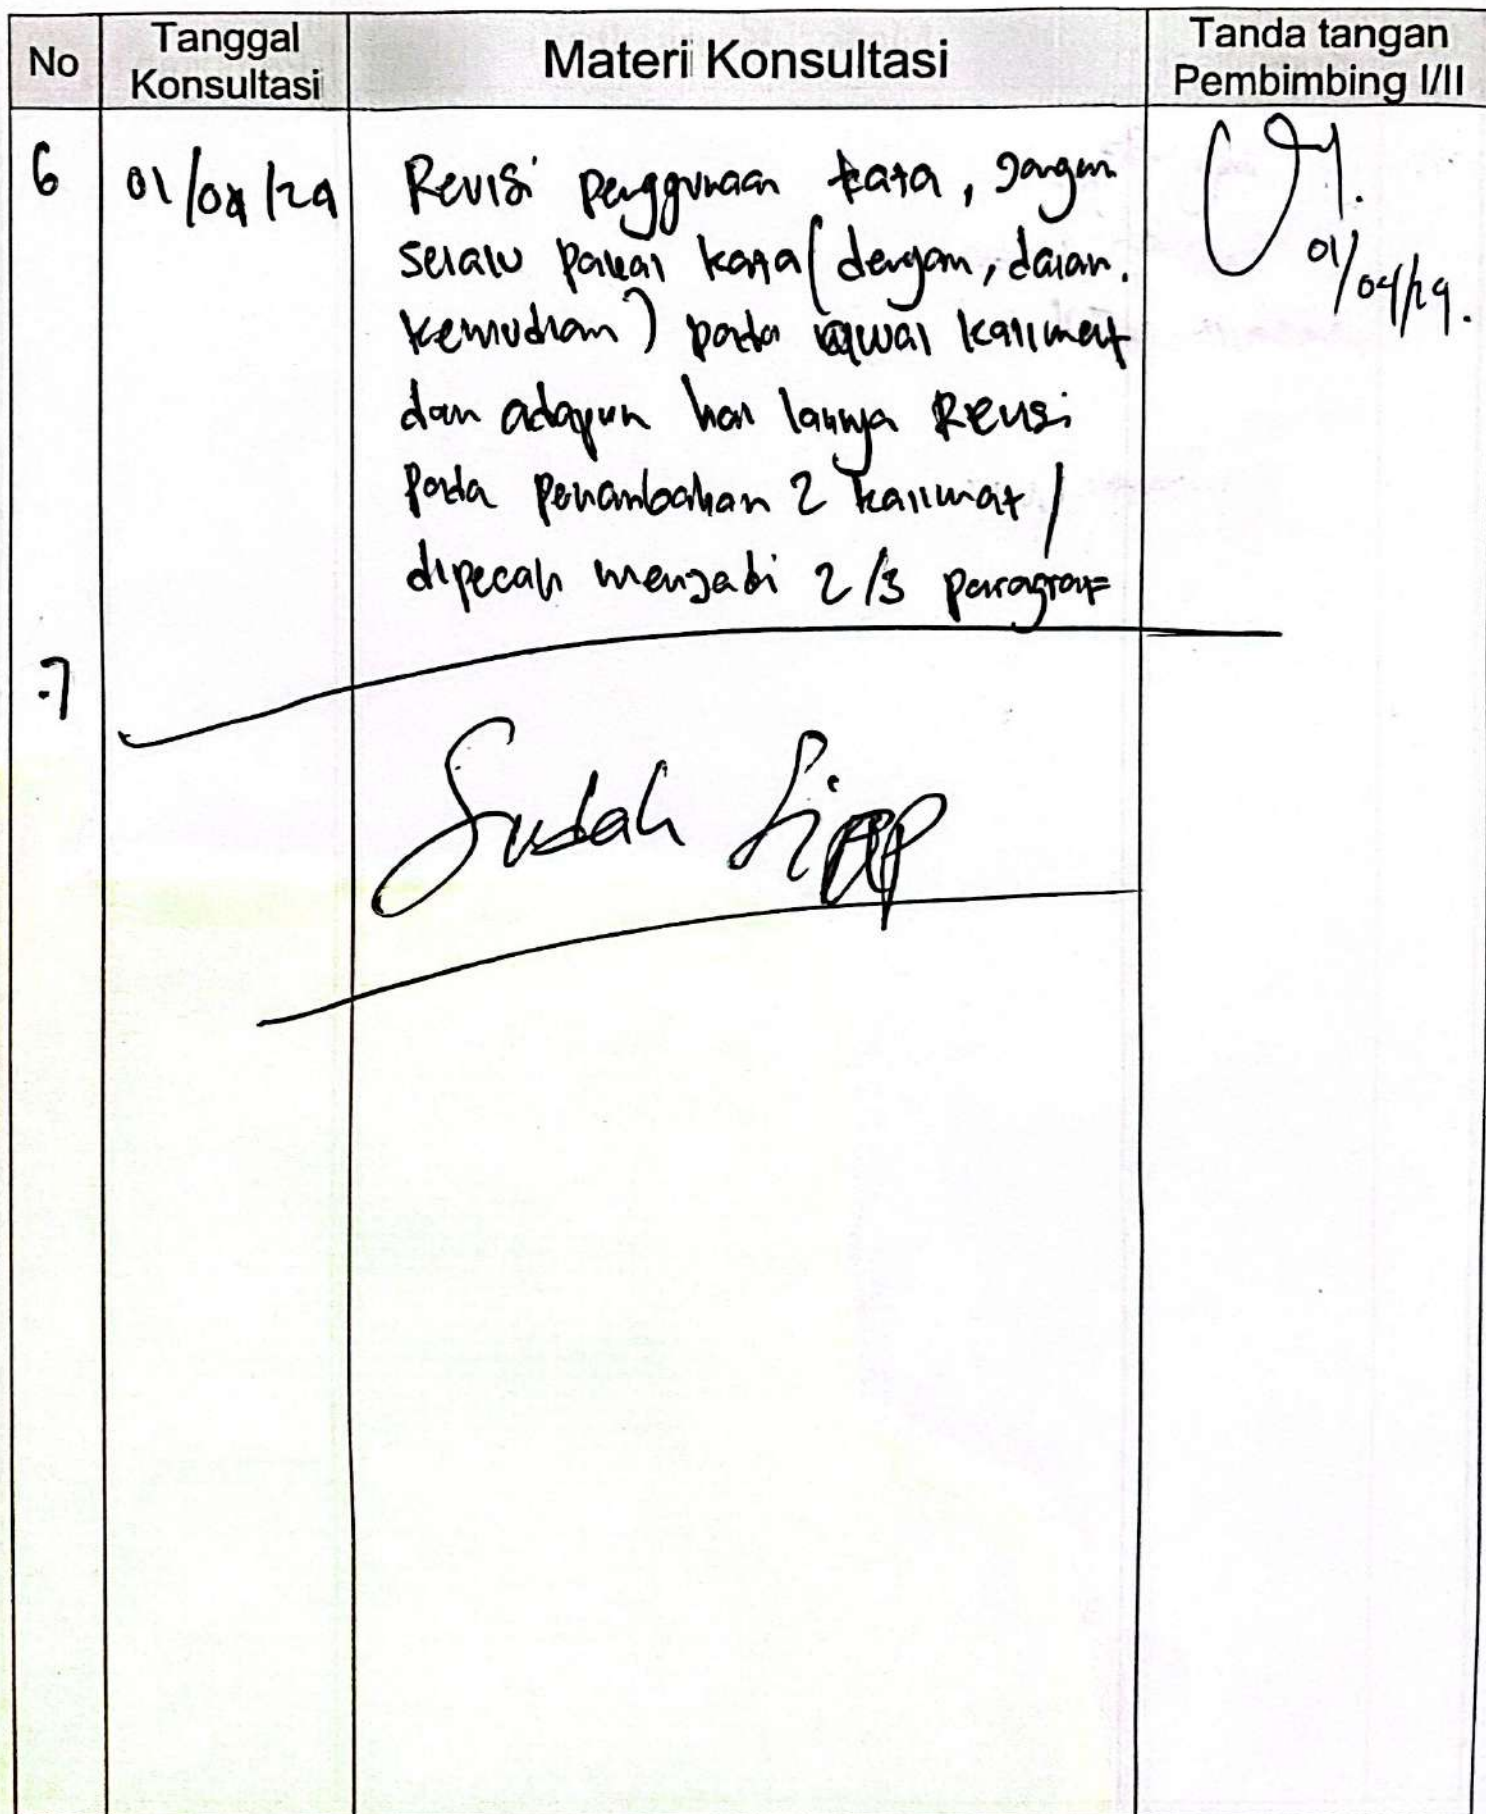 No
Tanggal Konsultasi
Materi Konsultasi
Tanda tangan Pembimbing I/II
6
01/04/24
Revisi penggunaan kata, Jangan
selalu pakai kata (dengan, dalam.
kemudian) pada awal kalimat
dan adapun hal lainya Revisi
pada penambahan 2 kalimat /
dipecah menjadi 2/3 paragraf
01/04/24.
7
Sudah Siap